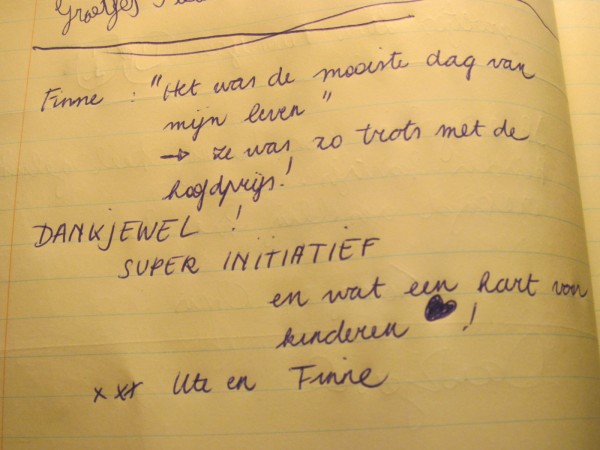 Groetjes
Finne : "Het was de mooiste dag van
mijn leven"
→ ze was zo trots met de
hoofdprijs!
DANKJEWEL !
SUPER INITIATIEF
en wat een hart van
kinderen ♥ !
xxx Ute en Finne